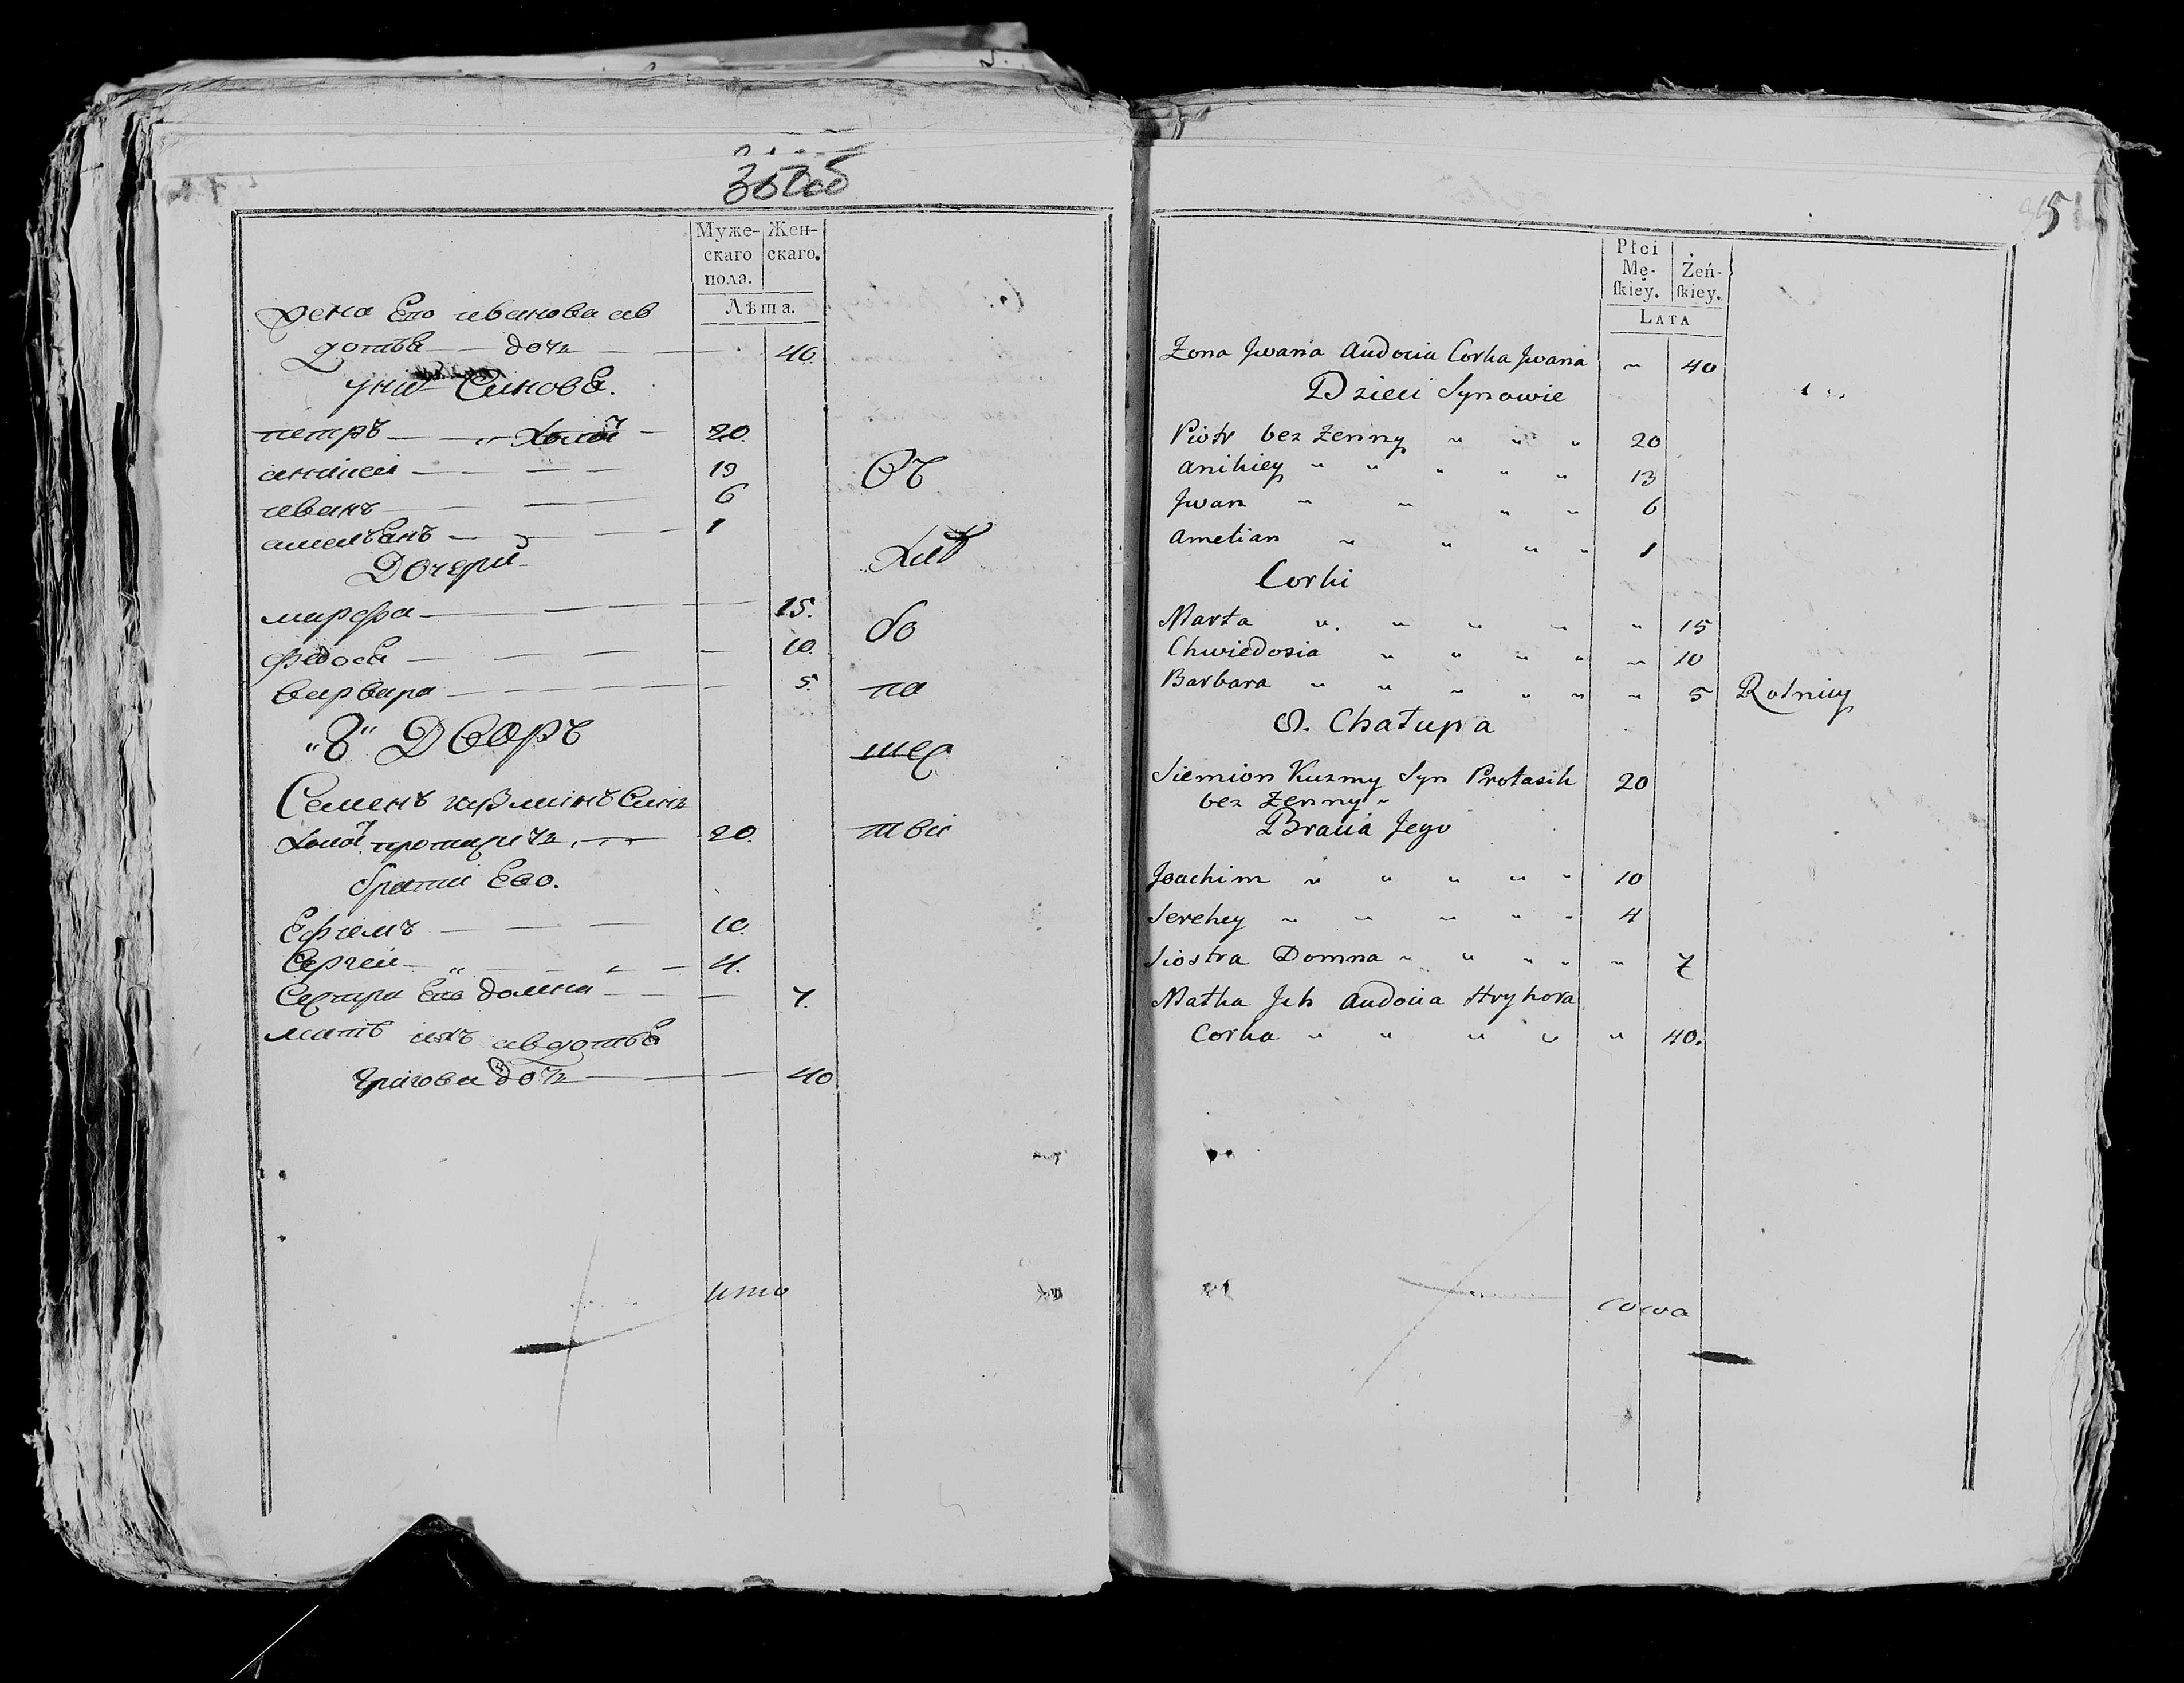 350об
Муже-
скаго
пола.
Жен-
скаго.
Лѣта.
жена Ево иванова ав
дотья — доч — 40.
у ни Синовя.
петръ — холо — 20.
аникеи — 13
иванъ — 6
амельянъ — 1
Дочери
марфа — 15.
федося — 10.
варвара — 5.
"8" Дворъ
Семенъ кузминъ Синъ
холо протасичъ — 20.
братя Ево.
Ефимъ — 10.
Сергеи — 4.
Сестра Ево домна — 7.
мать ихъ авдотья
григова доч — 40
Хлѣ
бо
па
шес
тва
ито
51
Płci
Mę-
ſkiey.
Żeń-
ſkiey.
LATA
Zona Jwana Audocia Corka Jwana " 40
Dzieci Synowie
Piotr bez Zenny " " " 20
Anikiey " " " " " 13
Jwan " " " " 6
Amelian " " " " 1
Corki
Marta " " " " " 15
Chwiedosia " " " " " 10
Barbara " " " " " " 5 Rolnicy
8. Chałupa
Siemion Kuzmy Syn Protasik 20
bez Zenny "
Bracia Jego
Joachim " " " " " 10
Serehey " " " " " 4
Siostra Domna " " " " " 7
Matka Jch Audocia Hryhora
Corka " " " " " 40.